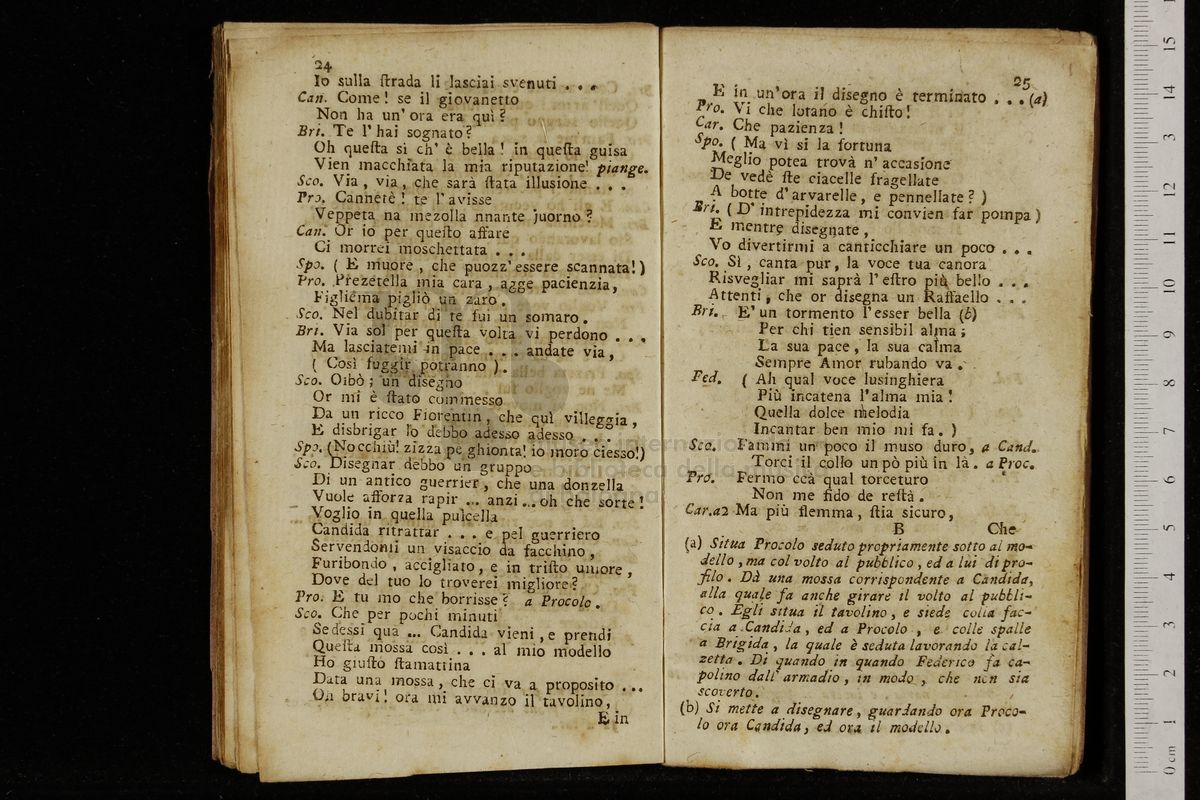 24
Io sulla ſtrada li laſciai svenuti . . .
Can. Come! se il giovanetto
Non ha un' ora era quì?
Bri. Te l' hai sognato?
Oh queſta si ch' è bella! in queſta guisa
Vien macchiata la mia riputazione! piange.
Sco. Via, via, che sarà ſtata illusione . . .
Pro. Cannetè! te l' avisse
Veppeta na mezolla nnante juorno?
Can. Or io per queſto affare
Ci morrei moschettata . . .
Spo. ( E muore, che puozz' essere scannata!)
Pro. Prezetella mia cara, agge pacienzia,
Figliema pigliò un zaro.
Sco. Nel dubitar di te fui un somaro.
Bri. Via sol per queſta volta vi perdono . . .
Ma lasciatemi in pace . . . andate via,
( Così fuggir potranno ).
Sco. Oibò; un disegno
Or mi è ſtato commesso
Da un ricco Fiorentin, che quì villeggia,
E disbrigar lo debbo adesso adesso . . .
Spo. (Nocchiù! zizza pe ghionta! io moro ciesso!)
Sco. Disegnar debbo un gruppo
Di un antico guerrier, che una donzella
Vuole afforza rapir ... anzi ... oh che sorte!
Voglio in quella pulcella
Candida ritrattar . . . e pel guerriero
Servendomi un visaccio da facchino,
Furibondo, accigliato, e in triſto umore,
Dove del tuo lo troverei migliore?
Pro. E tu mo che borrisse? a Procolo.
Sco. Che per pochi minuti
Sedessi qua ... Candida vieni, e prendi
Queſta mossa così . . . al mio modello
Ho giuſto ſtamattina
Data una mossa, che ci va a proposito ...
Oh bravi! ora mi avvanzo il tavolino,
E in
25
E in un'ora il disegno è terminato . . . (a)
Pro. Vi che lotano è chiſto!
Car. Che pazienza!
Spo. ( Ma vì si la fortuna
Meglio potea trovà n' accasione
De vedè ſte ciacelle fragellate
A botte d' arvarelle, e pennellate? )
Bri. ( D' intrepidezza mi convien far pompa )
E mentre disegnate,
Vo divertirmi a canticchiare un poco . . .
Sco. Sì, canta pur, la voce tua canora
Risvegliar mi saprà l' eſtro più bello . . .
Attenti, che or disegna un Raffaello . . .
Bri. E' un tormento l'esser bella (b)
Per chi tien sensibil alma;
La sua pace, la sua calma
Sempre Amor rubando va.
Fed. ( Ah qual voce lusinghiera
Più incatena l'alma mia!
Quella dolce melodia
Incantar ben mio mi fa. )
Sco. Fammi un poco il muso duro, a Cand.
Torci il collo un pò più in là. a Proc.
Pro. Fermo ccà qual torceturo
Non me fido de reſtà.
Car.a2 Ma più flemma, ſtia sicuro,
B Che
(a) Situa Procolo seduto propriamente sotto al mo-
dello, ma col volto al pubblico, ed a lui di pro-
filo. Dà una mossa corrispondente a Candida,
alla quale fa anche girare il volto al pubbli-
co. Egli situa il tavolino, e siede colla fac-
cia a Candida, ed a Procolo, e colle spalle
a Brigida, la quale è seduta lavorando la cal-
zetta. Di quando in quando Federico fa ca-
polino dall' armadio, in modo, che non sia
scoverto.
(b) Si mette a disegnare, guardando ora Proco-
lo ora Candida, ed ora il modello.